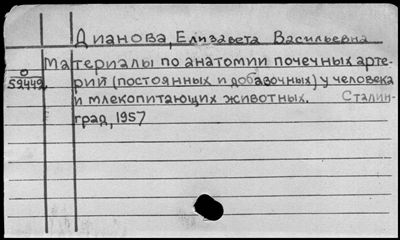 Дианова, Елизавета Васильевна
Материалы по анатомии почечных арте-
О
59449
рий (постоянных и добавочных) у человека
и млекопитающих животных. Сталин-
град, 1957